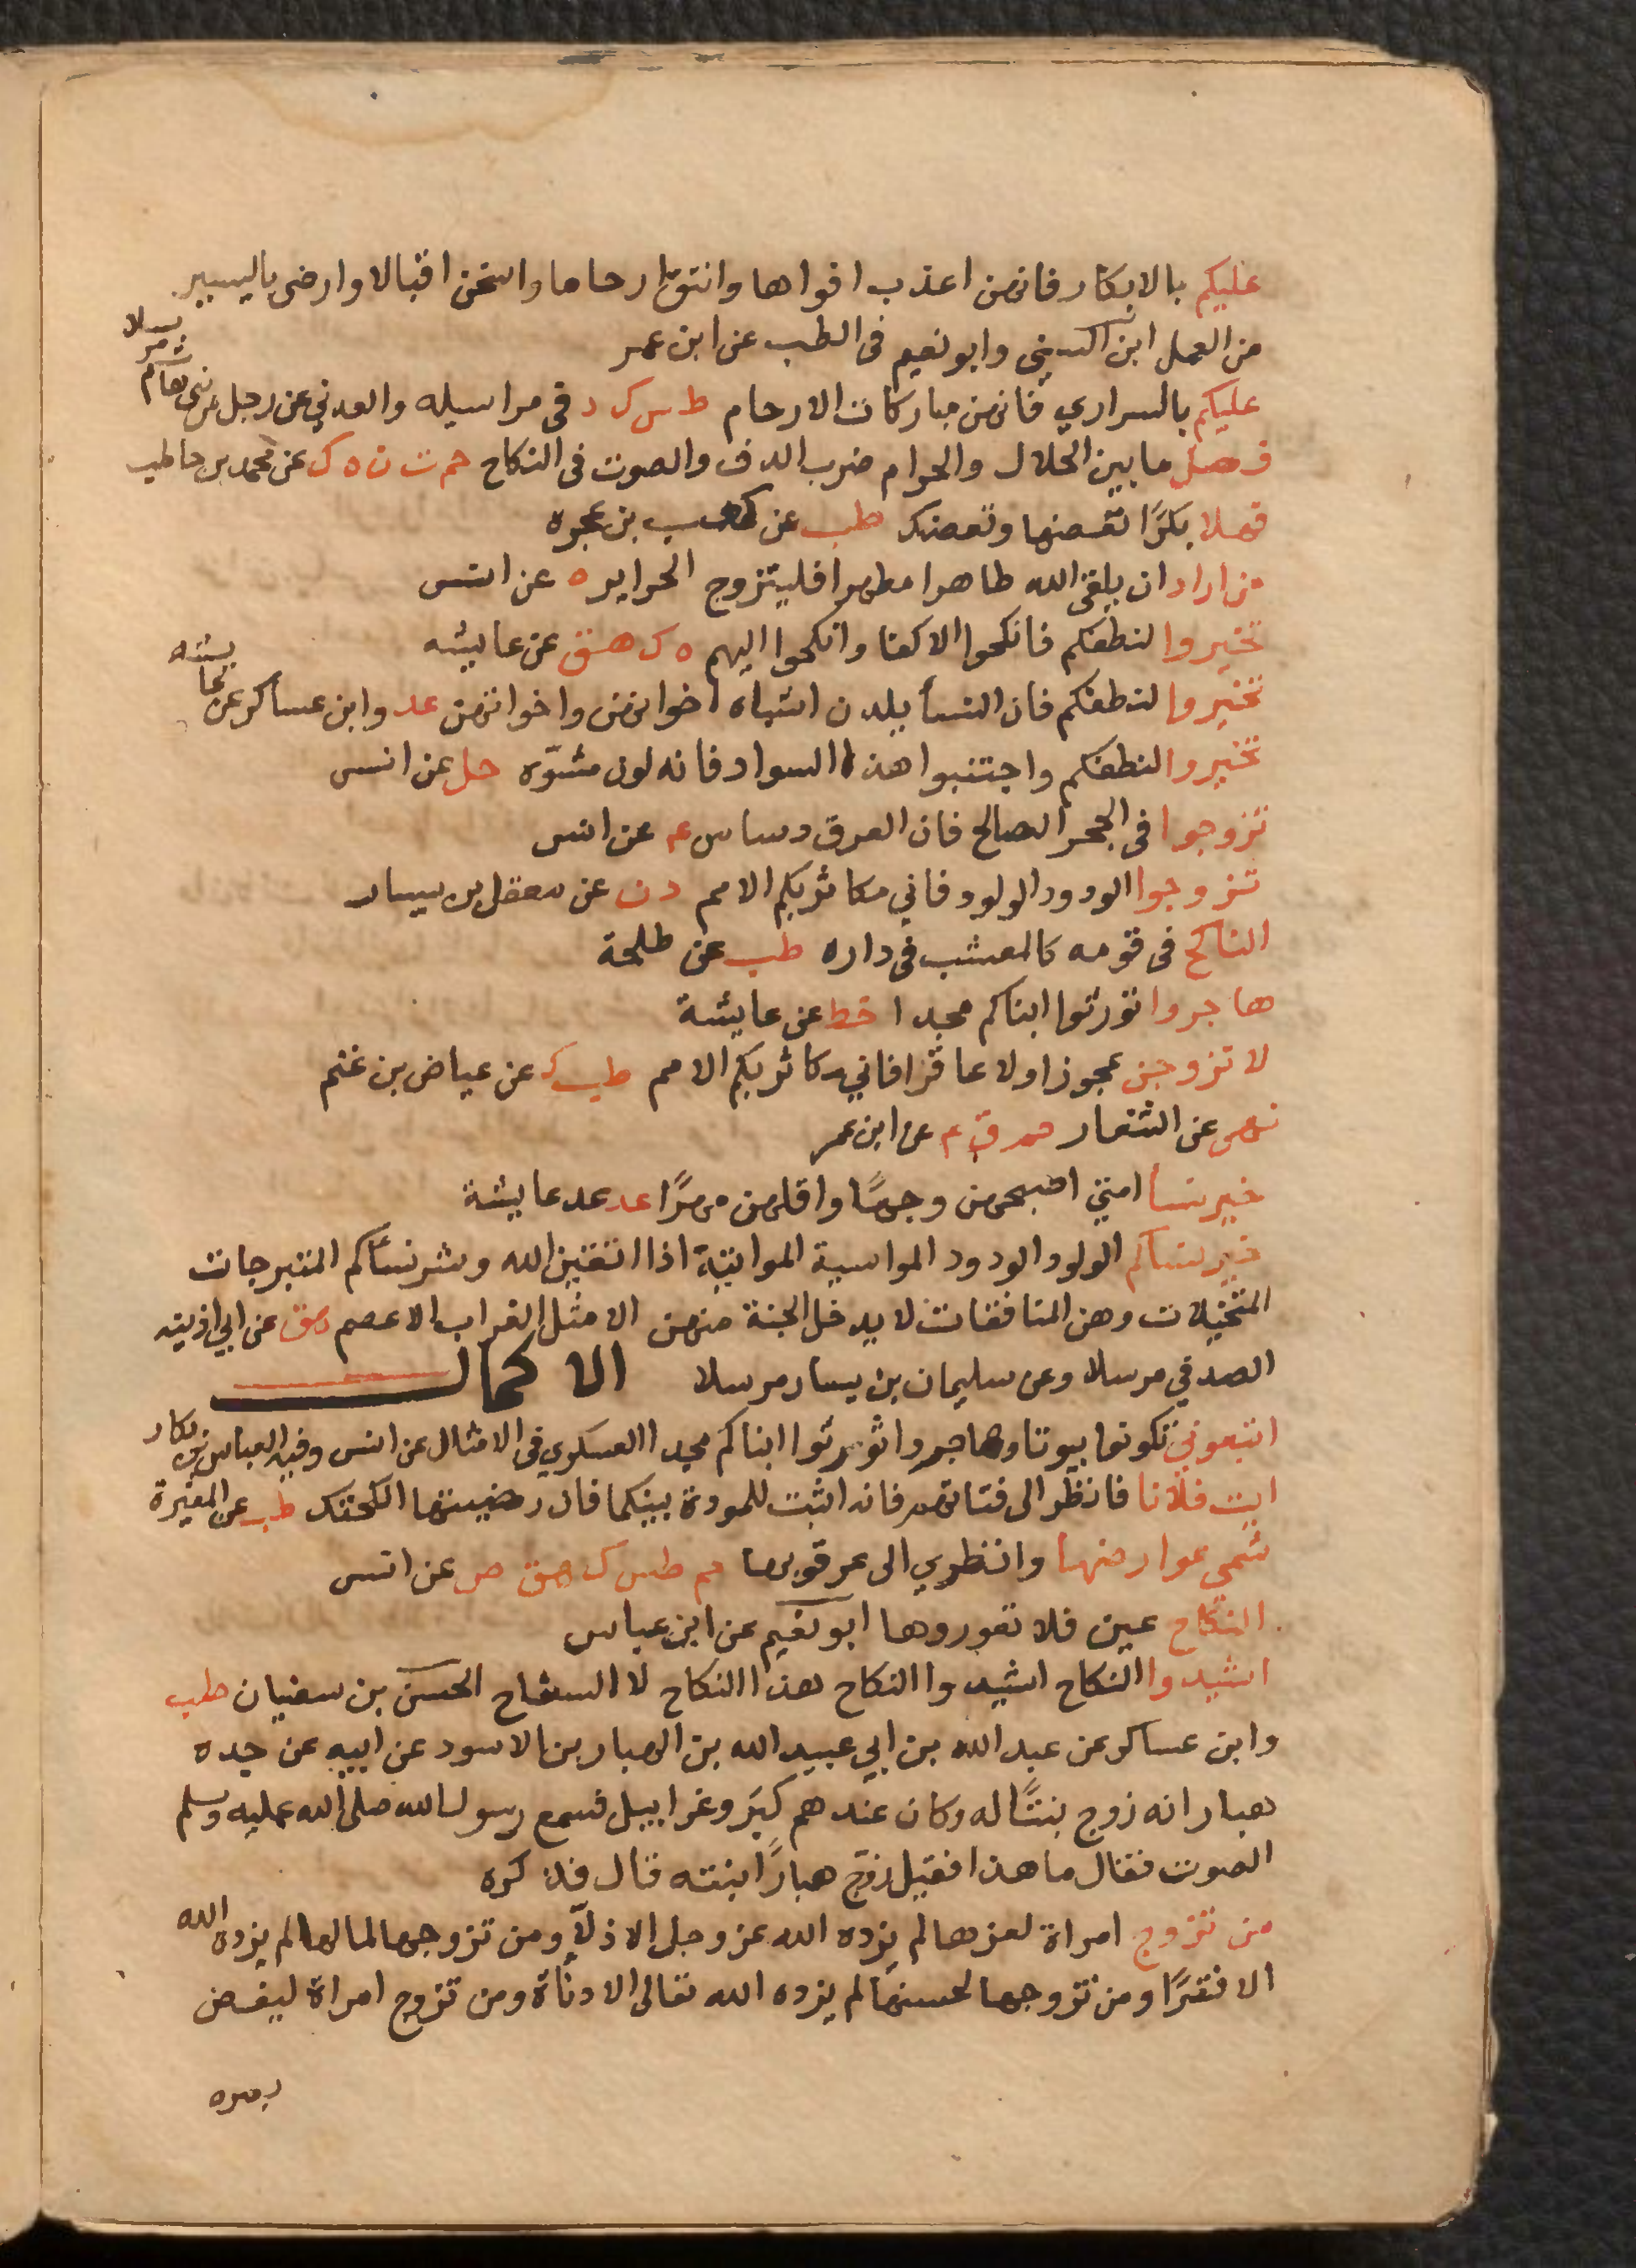 عليكم بالابكار فانهن اعذب افواها وانتق ارحاما واسخن اقبالا وارضى باليسير
من العمل ابن السني وابو نعيم فى الطب عن ابن عمر
عليكم بالسراري فانهن مباركات الارحام طس ك د فى مراسيله والعدني عن رجل من بني هاشم مرسلا
فصل ما بين الحلال والحرام ضرب الدف والصوت فى النكاح حم ت ن ه ك عن محمد بن حاطب
فهلا بكرًا تعضها وتعضك طب عن كعب بن عجره
من اراد ان يلقى الله طاهرا مطهرا فليتزوج الحراير ه عن انس
تخيروا لنطفكم فانكحوا الاكفا وانكحوا اليهم ه ك هق عن عايشه
تخيروا لنطفكم فان النسأ يلدن اشباه اخوانهن واخواتهن عد وابن عساكر عن عايشه
تخيروا لنطفكم واجتنبوا هذا السواد فانه لون مشوّه حل عن انس
تزوجوا فى الحجر الصالح فان العرق دساس عد عن انس
تزوجوا الودود الولود فاني مكاثر بكم الامم د ن عن معقل بن يسار
الناكح فى قومه كالمعشب فى داره طب عن طلحة
هاجروا تورثوا ابناكم مجدا خط عن عايشة
لا تزوجن عجوزا ولا عاقرا فاني مكاثر بكم الامم طب ك عن عياض بن غنم
نهى عن الشغار حم ق ٤ عن ابن عمر
خير نسا امتي اصبحهن وجهًا واقلهن مهرًا عد عد عايشة
خير نساكم الولود الودود المواسية المواتية اذا اتقين الله وشر نسأكم المتبرجات
المتخيلات وهن المنافقات لا يدخل الجنة منهن الا مثل الغراب الاعصم هق عن ابي اذينه
الصدفي مرسلا وعن سليمان بن يسار مرسلا الاكمال
اتبعوني تكونوا بيوتا وهاجروا تورثوا ابناكم مجدا العسكري فى الامثال عن انس وفيه العباس بن بكار
ايت فلانا فانظر الى فتاتهم فانه اثبت للمودة بينكما فان رضيتها انكحتك طب عن المغيرة
شمي عوارضها وانظري الى عرقوبها حم طس ك هق ص عن انس
النكاح عين فلا تعوروها ابو نعيم عن ابن عباس
اشيدوا النكاح اشيدوا النكاح هذا النكاح لا السفاح الحسن بن سفيان طب
وابن عساكر عن عبد الله بن ابي عبيد الله بن الهبار بن الاسود عن ابيه عن جده
هبار انه زوج بنتًا له وكان عندهم كبَر وغرابيل فسمع رسول الله صلى الله عليه وسلم
الصوت فقال ما هذا فقيل زوّج هبارًا بنته قال فذكره
من تزوج امراة لعزها لم يزده الله عز وجل الا ذلّا ومن تزوجها لمالها لم يزده الله
الا فقرًا ومن تزوجها لحسنها لم يزده الله تعالى الا دنأة ومن تزوج امراة ليغض
بصره